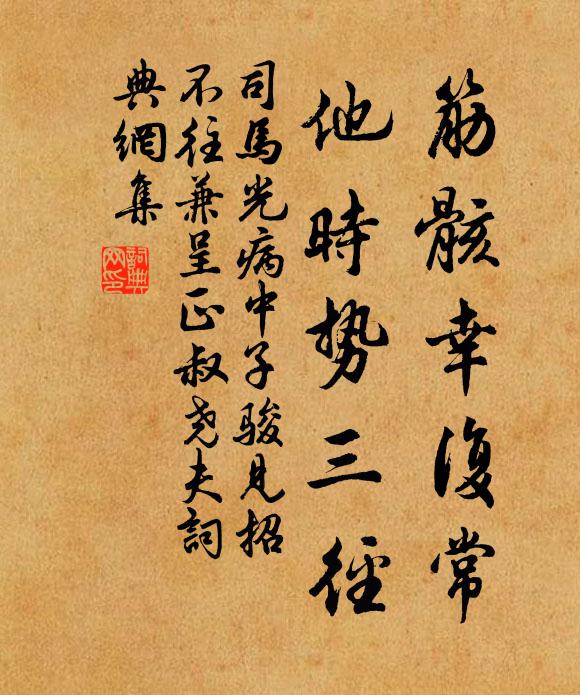 筋骸幸復常
他時势三径
司馬光病中子駿見招
不往兼呈正叔尧夫詞
典網集
詞典网印